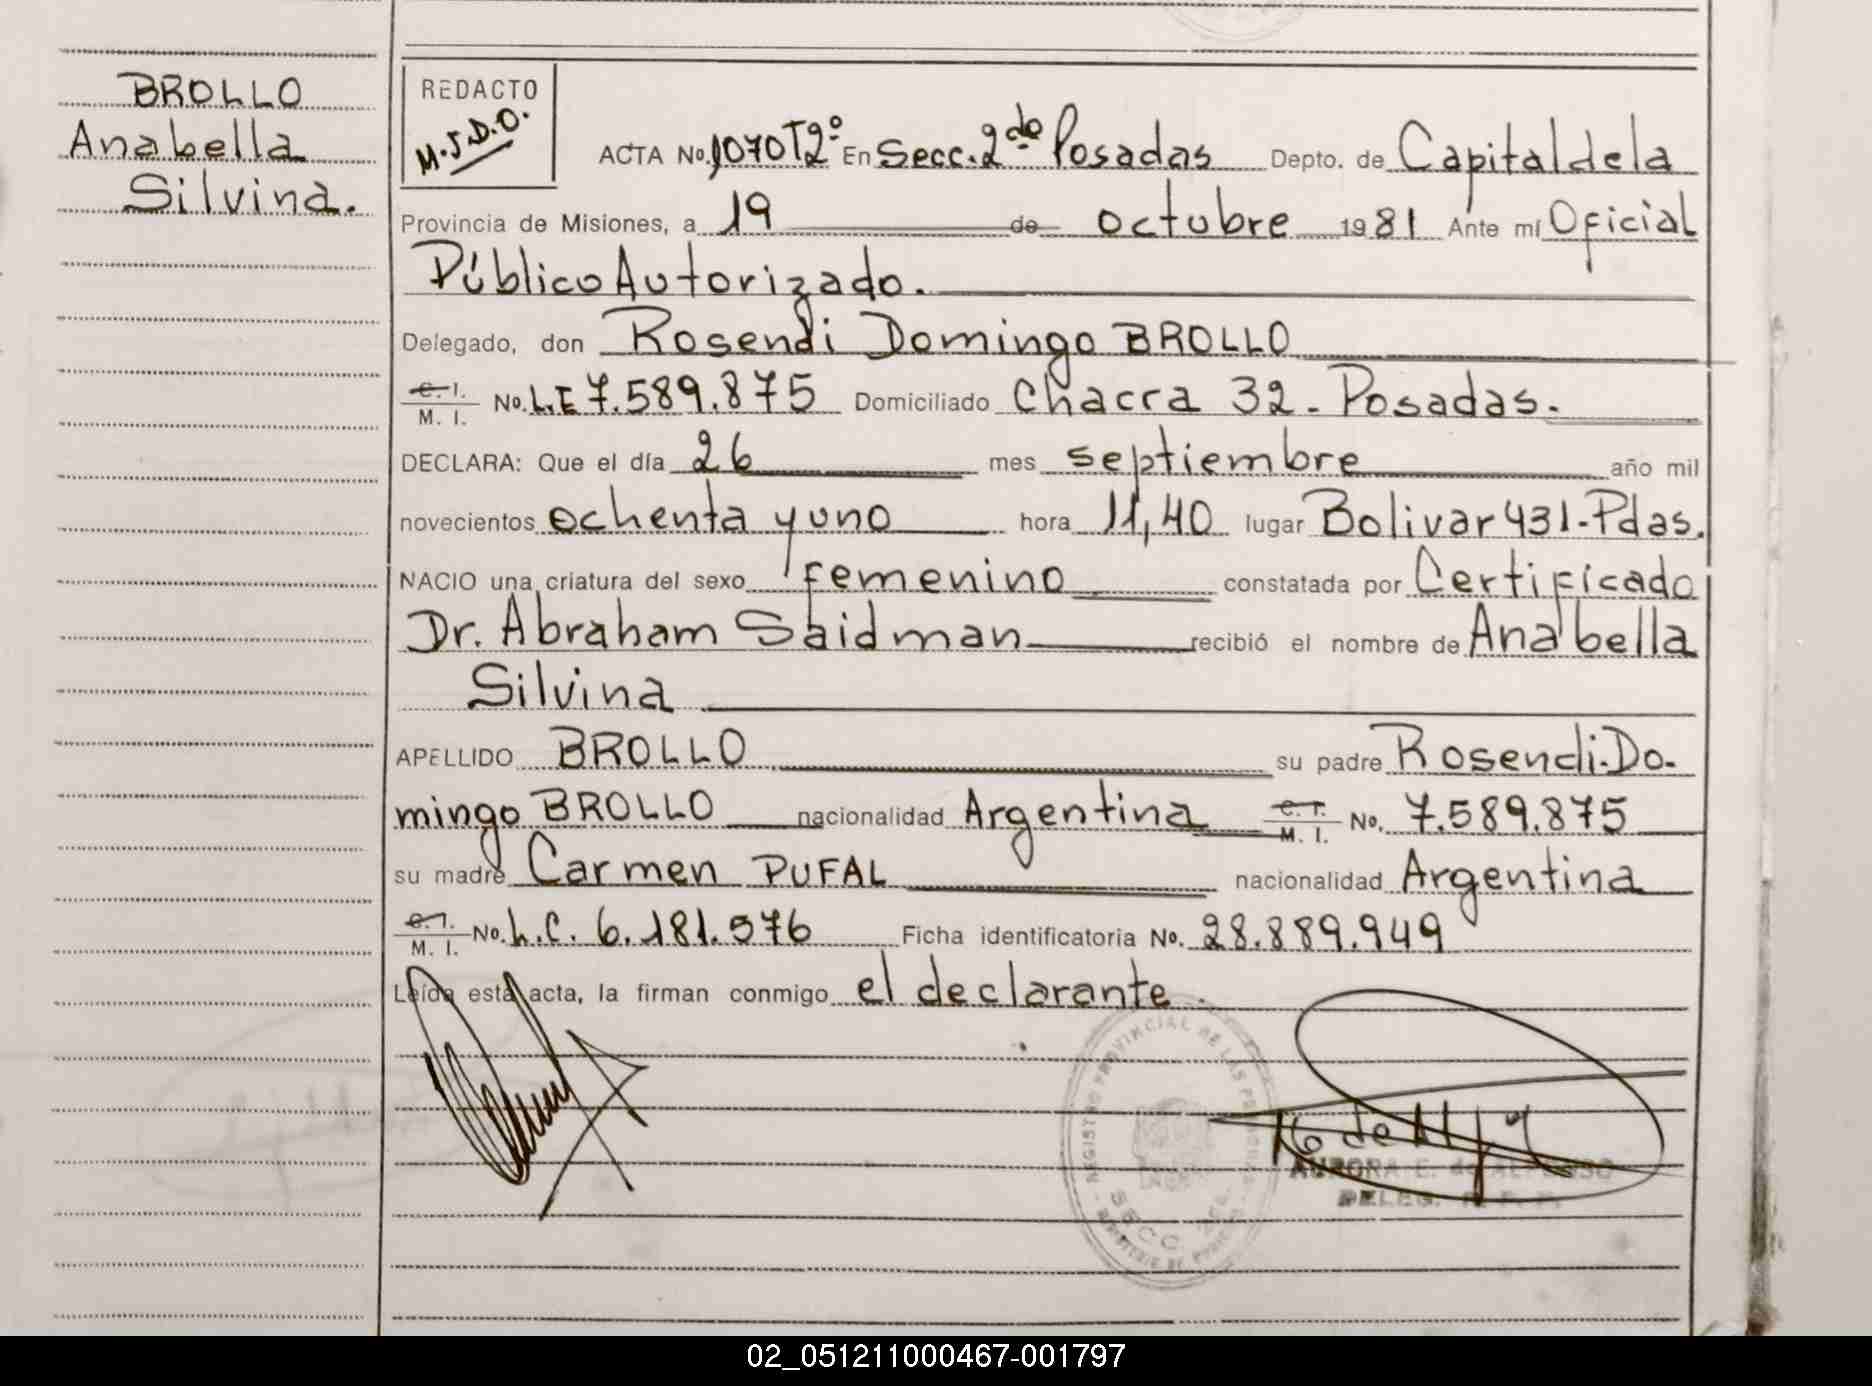 BROLLO
Anabella
Silvina.
REDACTO
M.J.D.O.
ACTA No. 1070 T2º En Secc. 2do Posadas Depto. de Capital de la
Provincia de Misiones, a 19 de octubre 1981 Ante mí Oficial
Público Autorizado.
Delegado, don Rosendi Domingo BROLLO
C. I. / M. I. No. L.E 7.589.875 Domiciliado Chacra 32 - Posadas.
DECLARA: Que el día 26 mes septiembre año mil
novecientos ochenta y uno hora 11,40 lugar Bolivar 431 - Pdas.
NACIO una criatura del sexo femenino constatada por Certificado
Dr. Abraham Saidman recibió el nombre de Anabella
Silvina
APELLIDO BROLLO su padre Rosendi Do-
mingo BROLLO nacionalidad Argentina C. I. / M. I. No. 7.589.875
su madre Carmen PUFAL nacionalidad Argentina
C. I. / M. I. No. L.C. 6.181.576 Ficha identificatoria No. 28.889.949
Leída esta acta, la firman conmigo el declarante.
REGISTRO PROVINCIAL DE LAS PERSONAS
SECC. 2da.
AURORA E. de ALFONSO
DELEG. R. P. P.
02_051211000467-001797